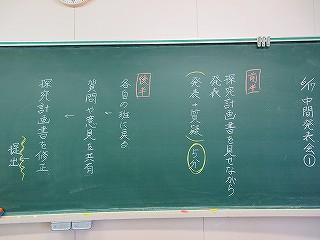 5/17 中間発表会①
前半
探究計画書を見せながら
発表
(発表+質疑) 5分
後半
各自の班に戻る
↓
質問や意見を共有
↓
探究計画書を修正
提出